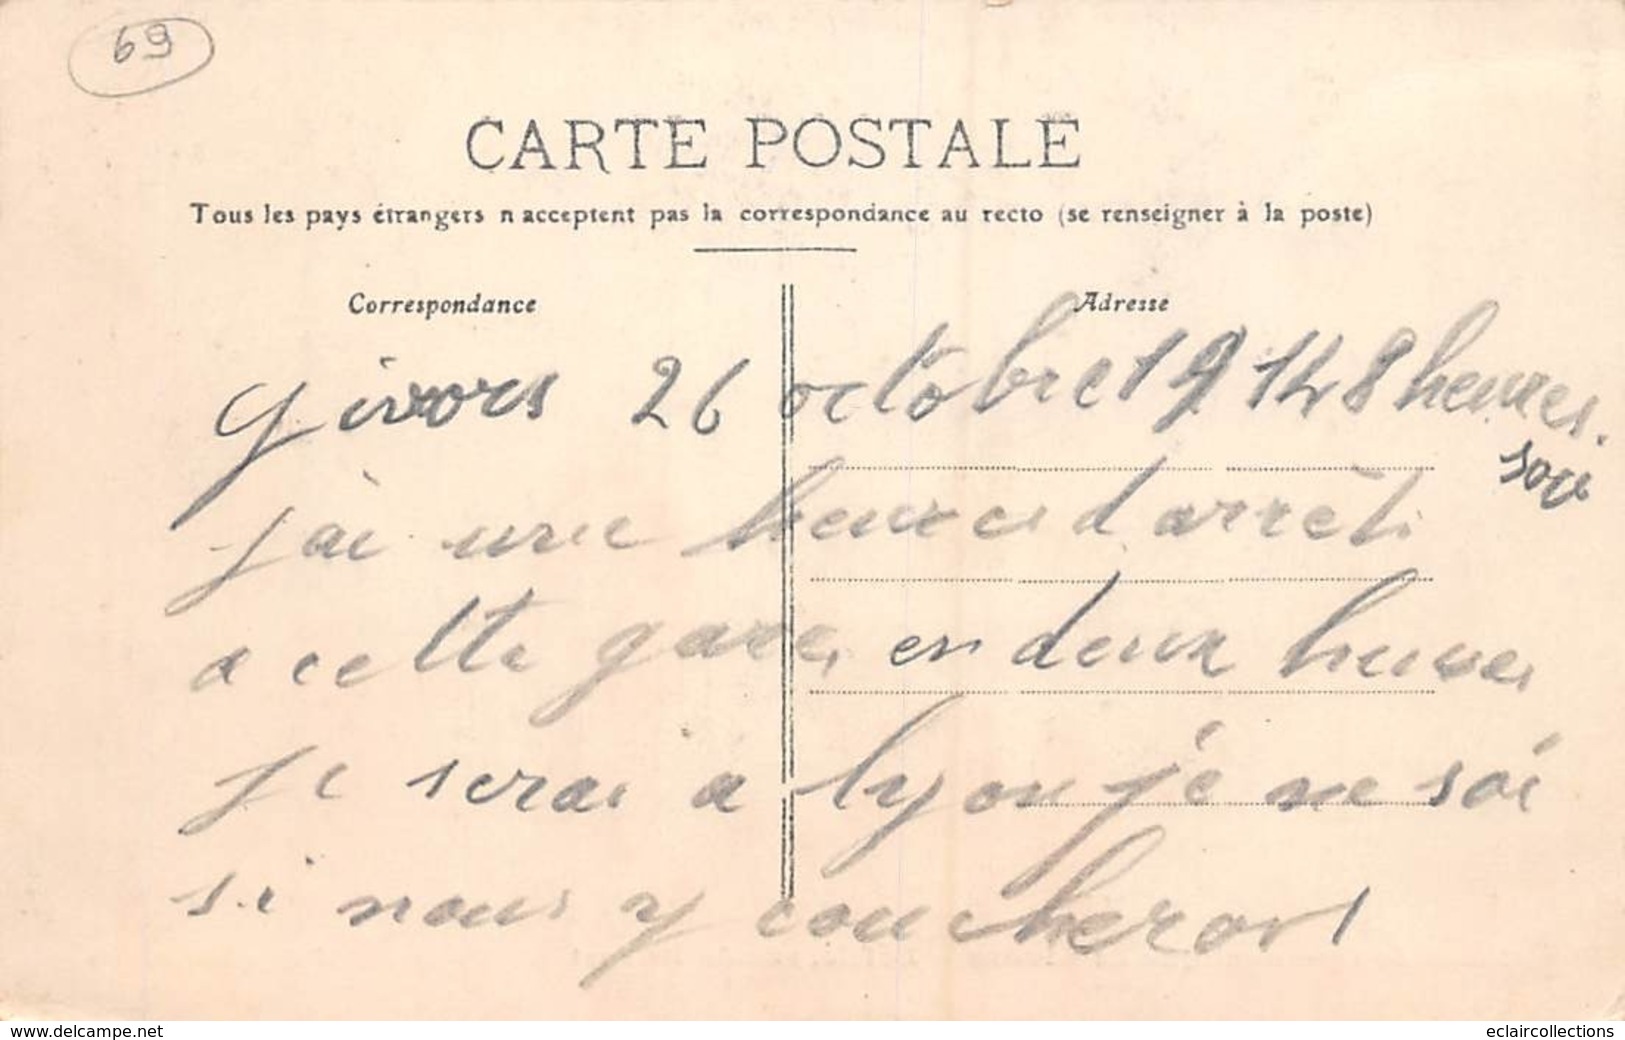 69
CARTE POSTALE
Tous les pays étrangers n acceptent pas la correspondance au recto (se renseigner à la poste)
Correspondance
Adresse
givors 26 octobre 1914 8 heures.
soir
j'ai une heures d arrêt.
a cette gare, en deux heures
je serai a lyon je ne sai
si nous y coucherons
www.delcampe.net
eclaircollections